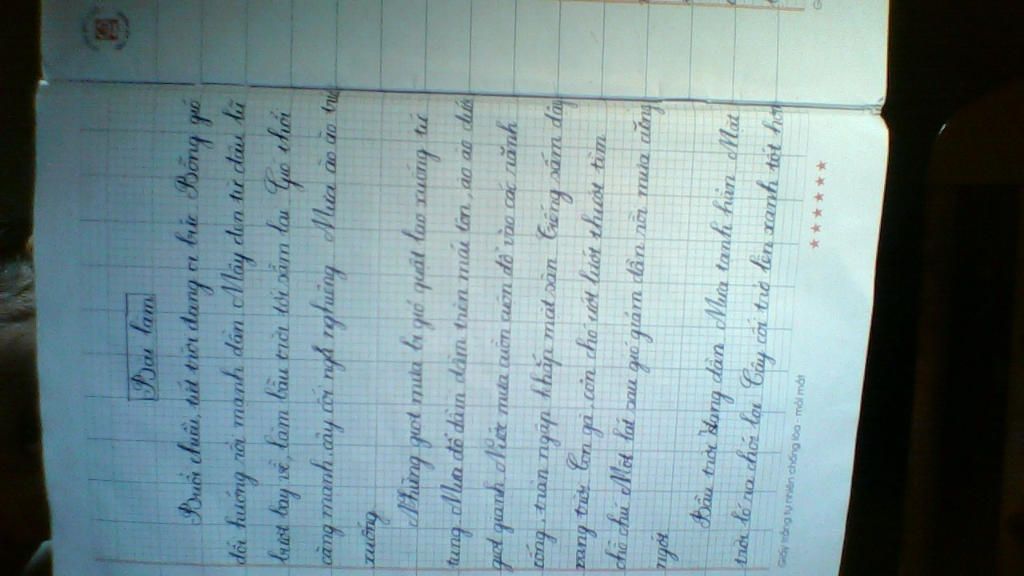 Bài làm
Buổi chiều, tiết trời đang oi bức Bỗng gió
đổi hướng rồi mạnh dần Mây đen từ đâu lũ
lượt bay về, làm bầu trời tối sầm lại Gió thổi
càng mạnh cây cối ngả nghiêng Mưa ào ào trú
xuống
Những giọt mưa bị gió quật lao xuống tứ
tung Mưa đổ dầm dầm trên mái tôn, ào ào dưới
giọt gianh Nước mưa cuồn cuộn đổ vào các rãnh
cống, tràn ngập khắp mặt sân Tiếng sấm động
vang trời Con gà, con chó ướt lướt thướt tìm
chỗ chú Một lát sau gió giảm dần rồi mưa cũng
ngớt
Bầu trời dần Mưa tạnh hẳn Mặt
trời ló ra chói lọi Cây cối trở lên xanh tốt hơn
Giấy trắng tự nhiên chống lóa - mỏi mắt